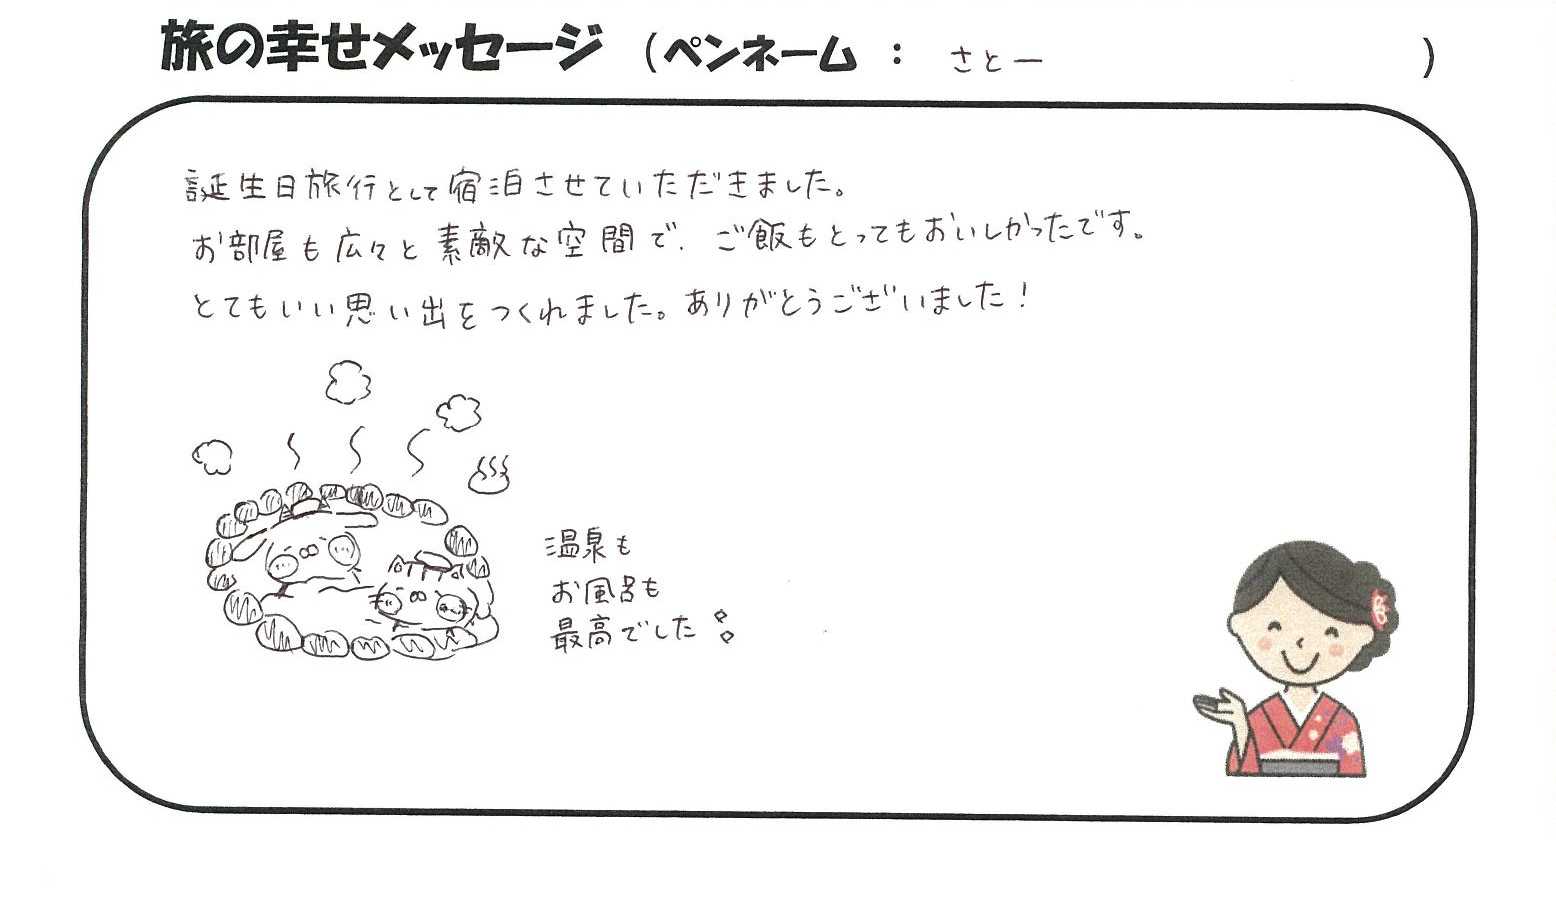 旅の幸せメッセージ (ペンネーム : さとー )
誕生日旅行として宿泊させていただきました。
お部屋も広々と素敵な空間で、ご飯もとってもおいしかったです。
とてもいい思い出をつくれました。ありがとうございました!
温泉も
お風呂も
最高でした